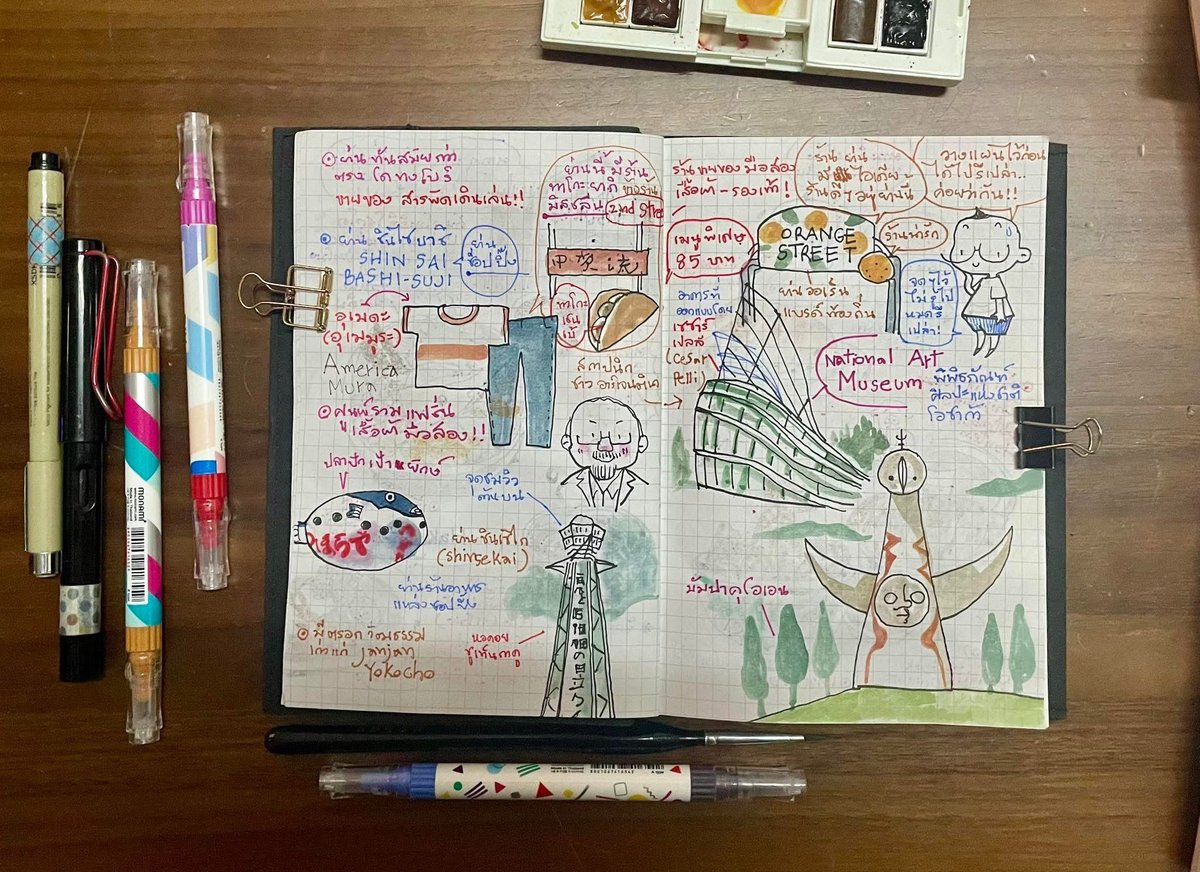 ย่านทันสมัยกว่า
ตรงโดทงโบริ
ขายของ สารพัดเดินเล่น!!
ย่านชินไซบาชิ
SHIN SAI
BASHI-SUJI
ย่าน
ช็อปปิ้ง
อเมดะ
(อุเมมูระ)
America
Mura
ศูนย์รวมแฟชั่น
เสื้อผ้ามือสอง!!
ปลาปักเป้ายักษ์
ย่านนี้มีร้าน
ทาโกะยากิ
มิสชลีน
2nd Stree
ทาโกะ
จุดชมวิว
ด้านบน
ย่านชินเซไก
(Shinsekai)
ย่านร้านอาหาร
แหล่งช้อปปิ้ง
มีตรอกวัฒธรรม
เก่าแก่ Janjan
Yokocho
หอคอย
ซูเท็นคาคุ
สถาปนิก
ชาวอาร์เจนตินา
ร้านขายของมือสอง
เสื้อผ้า-รองเท้า!
เมนูพิเศษ
85 บาท
อาคารที่
ออกแบบโดย
เซซาร์
เปลลี
(Cesar
Pelli)
ร้าน ย่าน
มีไอเดีย
ร้านดีๆอยู่ย่านนี้
วางแผนไว้ก่อน
ได้ไปรึเปล่า..
ค่อยว่ากัน!!
ORANGE
STREET
ร้านน่ารัก
ย่านออเร้น
แบรด์ท้องถิ่น
จดๆไว้
ไม่รู้ไป
หมดรึ
เปล่า!
National Art
Museum
พิพิธภัณฑ์
ศิลปะแห่งชาติ
โอซาก้า
บัมปาคุโอเอน
monami